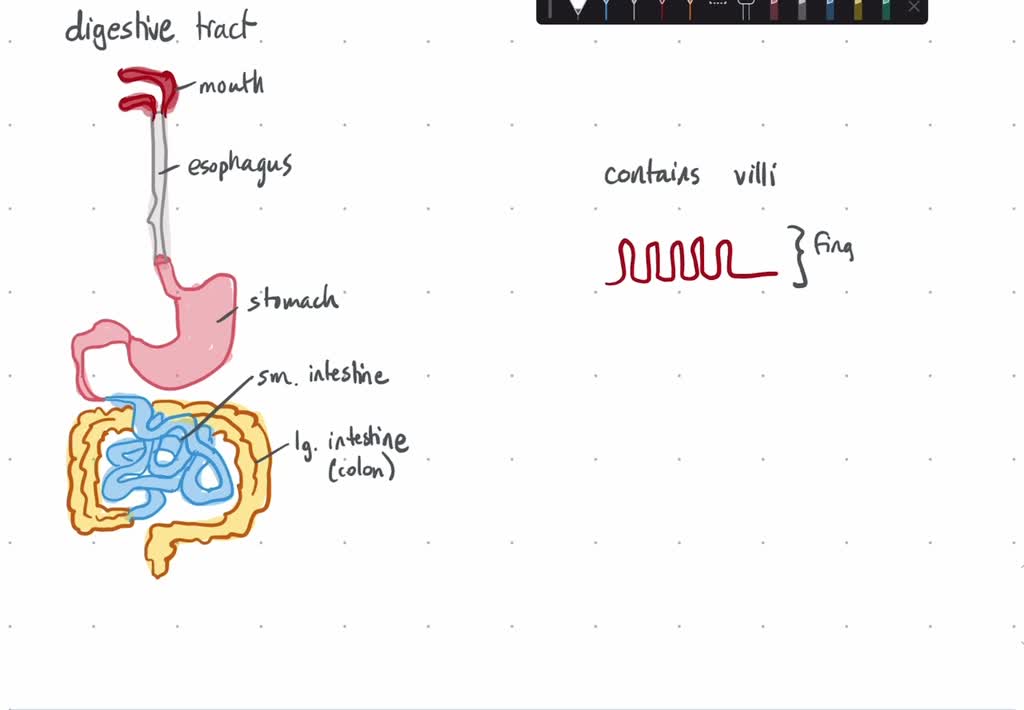 digestive tract
mouth
esophagus
stomach
sm. intestine
lg. intestine
(colon)
contains villi
fing